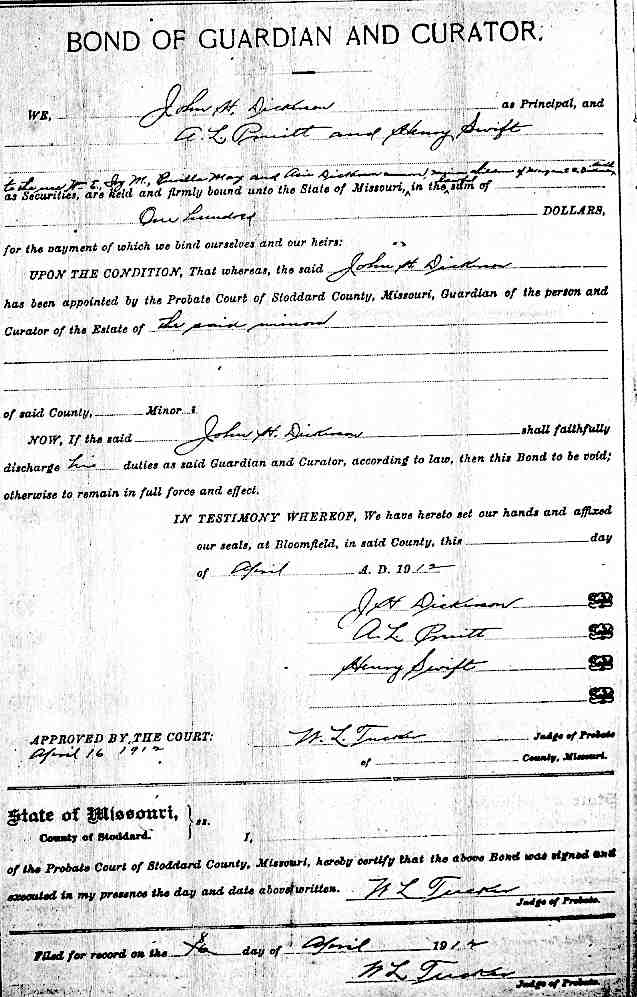 BOND OF GUARDIAN AND CURATOR.
WE, John H. Dickinson as Principal, and
A. L. Pruitt and Henry Swift
to the use Wm E., M., May and Dickinson
as Securities, are held and firmly bound unto the State of Missouri, in the sum of
One hundred DOLLARS,
for the payment of which we bind ourselves and our heirs:
UPON THE CONDITION, That whereas, the said John H. Dickinson
has been appointed by the Probate Court of Stoddard County, Missouri, Guardian of the person and
Curator of the Estate of the said minors
of said County, Minor s
NOW, If the said John H. Dickinson shall faithfully
discharge his duties as said Guardian and Curator, according to law, then this Bond to be void;
otherwise to remain in full force and effect.
IN TESTIMONY WHEREOF, We have hereto set our hands and affixed
our seals, at Bloomfield, in said County, this day
of April A. D. 1912
J H Dickinson
A. L Pruitt
Henry Swift
APPROVED BY THE COURT: W. L. Tucker Judge of Probate
April 16 1912 of County, Missouri.
State of Missouri,
County of Stoddard. } ss. I,
of the Probate Court of Stoddard County, Missouri, hereby certify that the above Bond was signed and
executed in my presence the day and date above written. W L Tucker
Judge of Probate.
Filed for record on the day of April 1912
W L Tucker
Judge of Probate.